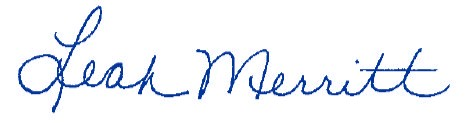 Leah Merritt